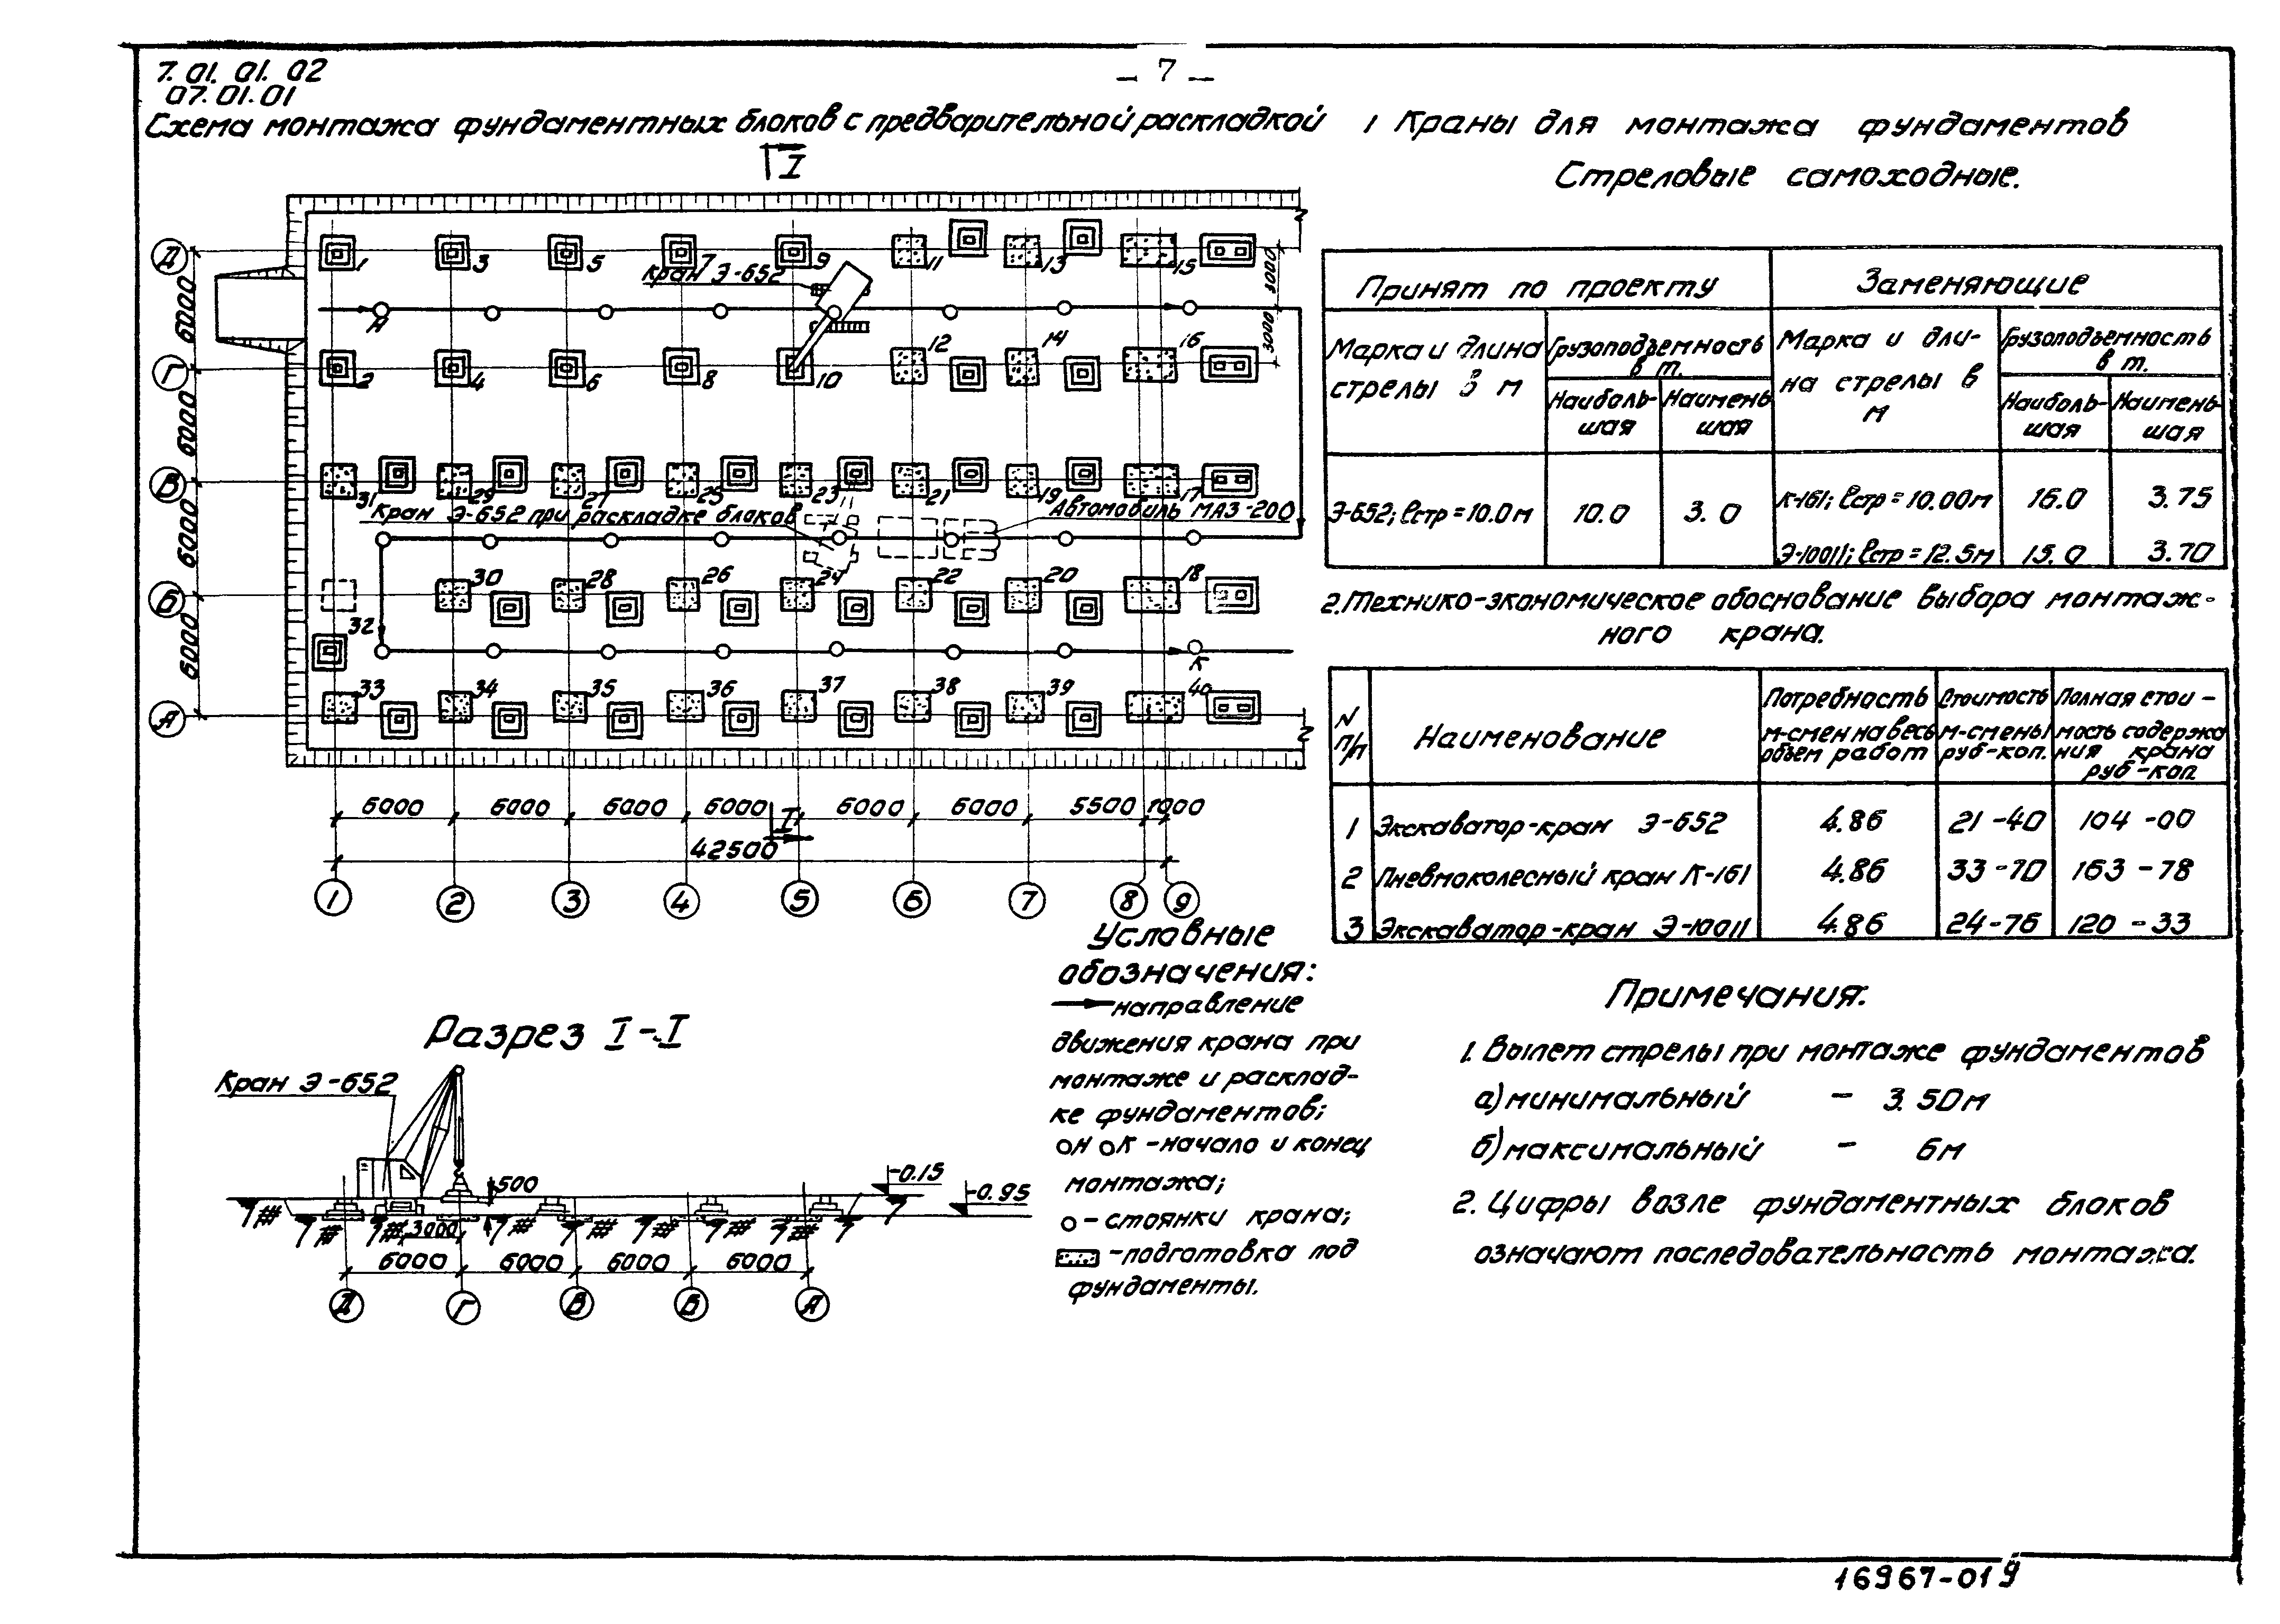 7.01.01.02
07.01.01
– 7 –
Схема монтажа фундаментных блоков с предварительной раскладкой
I
Д
Г
В
Б
А
6000
6000
6000
6000
3000
3000
1
3
5
7
9
11
13
15
Кран Э-652
Н
2
4
6
8
10
12
14
16
31
29
27
25
23
21
19
17
Кран Э-652 при раскладке блоков
Автомобиль МАЗ-200
30
28
26
24
22
20
18
32
К
33
34
35
36
37
38
39
40
6000 6000 6000 6000 6000 6000 5500 1000
I
42500
1 2 3 4 5 6 7 8 9
Разрез I-I
Кран Э-652
500
-0.15
-0.95
3000
6000 6000 6000 6000
Д Г В Б А
Условные
обозначения:
– направление
движения крана при
монтаже и расклад-
ке фундаментов;
Н К – начало и конец
монтажа;
– стоянки крана;
– подготовка под
фундаменты.
1 Краны для монтажа фундаментов
Стреловые самоходные.
Принят по проекту Заменяющие
Марка и длина стрелы в м
Грузоподъемность в т.
Наиболь-шая
Наимень шая
Марка и дли-на стрелы в м
Грузоподъемность в т.
Наиболь-шая
Наимень-шая
Э-652; ℓстр = 10.0м 10.0 3.0 К-161; ℓстр = 10.00м 16.0 3.75
Э-10011; ℓстр = 12.5м 15.0 3.70
2. Технико-экономическое обоснование выбора монтаж-
ного крана.
N п/п
Наименование
Потребность м-смен на весь объем работ
Стоимость м-смены руб-коп.
Полная стои-мость содержа ния крана руб-коп
1 Экскаватор-кран Э-652 4.86 21-40 104-00
2 Пневмоколесный кран К-161 4.86 33-70 163-78
3 Экскаватор-кран Э-10011 4.86 24-76 120-33
Примечания:
1. Вылет стрелы при монтаже фундаментов
а) минимальный – 3.50м
б) максимальный – 6м
2. Цифры возле фундаментных блоков
означают последовательность монтажа.
16967-01 9